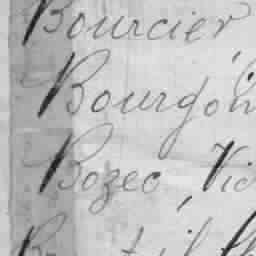 Bourcier
Bourgon
Bozec, Vic